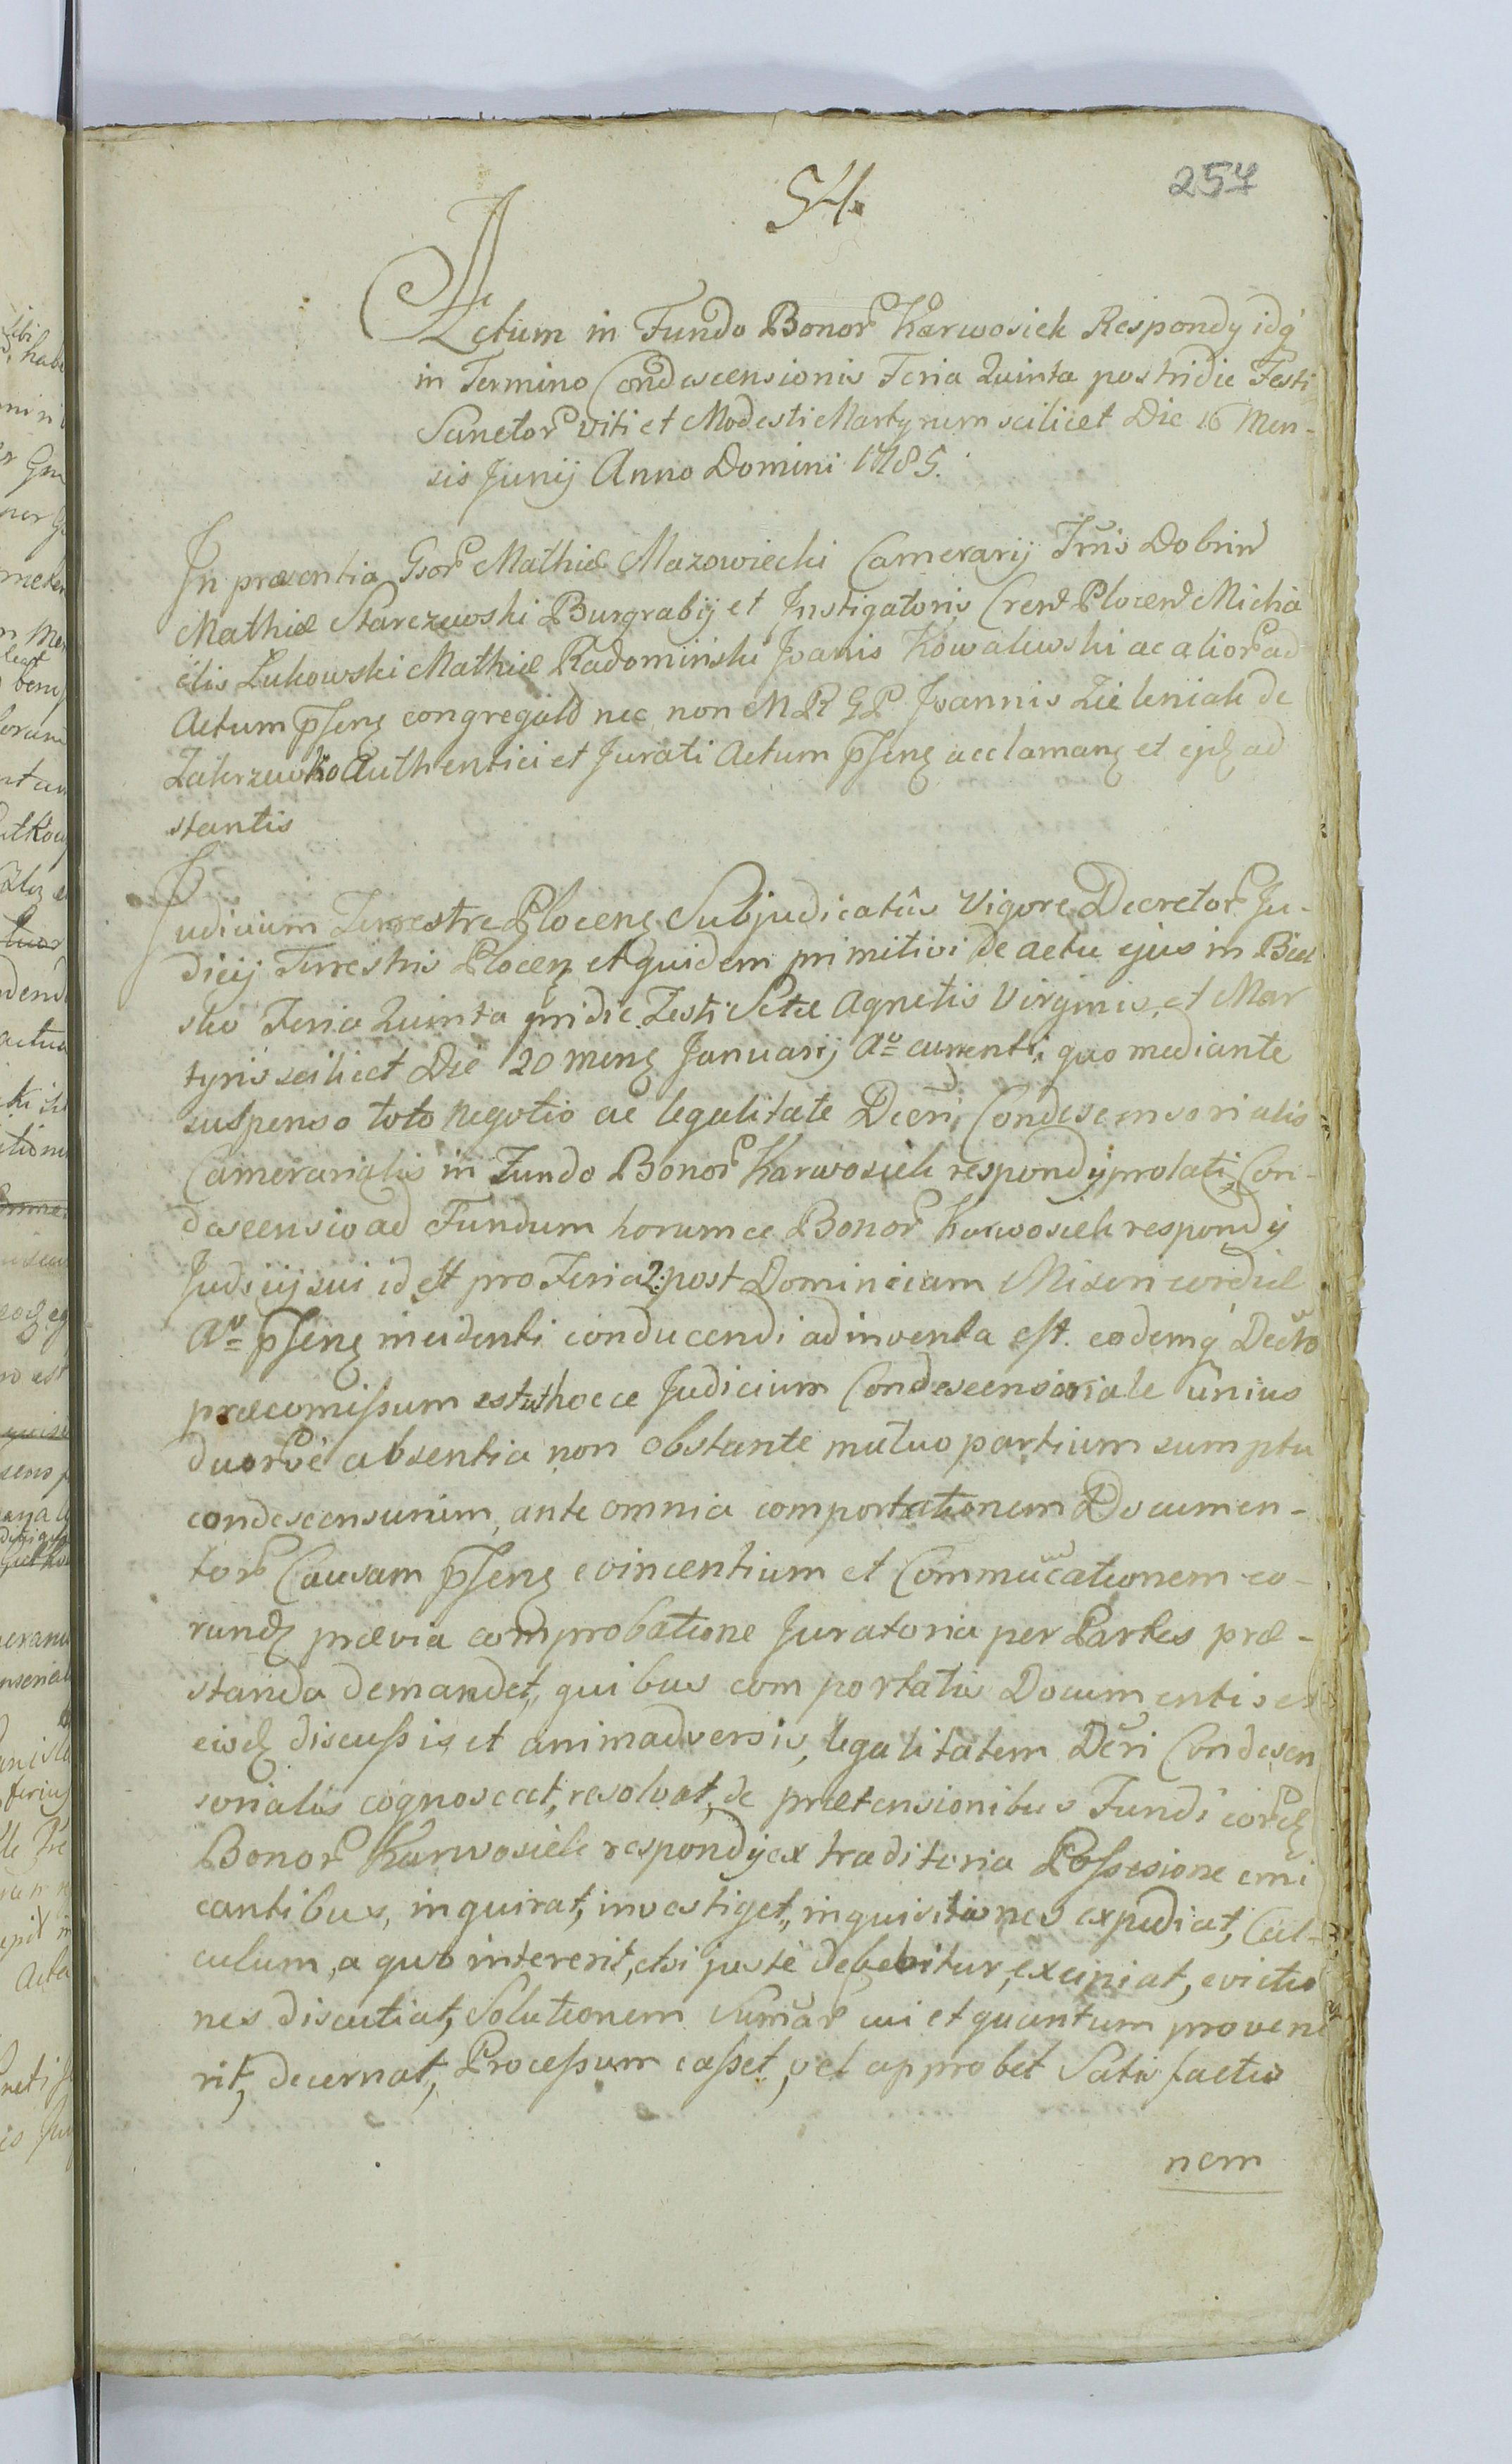 54.
257
Actum in Fundo Bonor Karwosiek Respondÿ idq
in Termino Condescensionis Feria Quinta postridie Festi
Sanctor Viti et Modesti Martyrum scilicet Die 16 Men-
sis Junij Anno Domini 1785.
In præsentia Gsor Mathiæ Mazowiecki Camerarij Tris Dobrin
Mathiæ Starczewski Burgrabij et Instigatoris Cren Plocen Micha
elis Lukowski Mathiæ Radominski Joanis Kowalewski ac alior ad
Actum pseng congregatd nec non M R G P Joannis Zieleniak de
Zakrzewko Authentici et Jurati Actum pseng acclamang et ejd ad
stantis
Judicium Terrestre Ploceng Subjudicatûs Vigore Decretor Ju-
dicij Terrestris Ploceng et quidem primitivi de actu ejus in Biel
sko Feria Quinta pridie Festi Sctæ Agnetis Virginis, et Mar
tyris scilicet Die 20 meng Januarij Ao currenti, quo mediante
suspenso toto negotio ac legalitate Decri, Condescensorialis
Camerarialis in Fundo Bonor Karwosiek respondÿ prolati, Con-
descensio ad Fundum horumce Bonor Karwosiek respondÿ
Judicij sui id est pro Feria 2: post Dominicam Misericordiæ
Ao pseng incidenti conducendi adinventa est. eodemq Decro
præcomissum est ut hocce Judicium Condescensoriale ûnius
duorvè absentia non obstante mutuo partium sumptu
condescensurum, ante omnia comportationem Documen-
tor Causam pseng evincentium et Commucationem eo-
rund prævia comprobatione Juratoria per Partes præ-
standa demandet, quibus comportatis Documentis et
eisd discussis et animadversis, legalitatem Decri Condescen
sorialis cognoscat, resolvat, de prætensionibus Fundi eord
Bonor Karwosiek respondÿ ex traditoria Possesione emi
cantibus, inquirat, investiget, inquisitiones expediat, Cal-
culum, a quo intererit, etsi justè debebitur, excipiat, evictio
nes discutiat, Solutionem Sumar cui et quantum provene
rit, decernat, Processum casset, vel approbet Satisfactio
nem